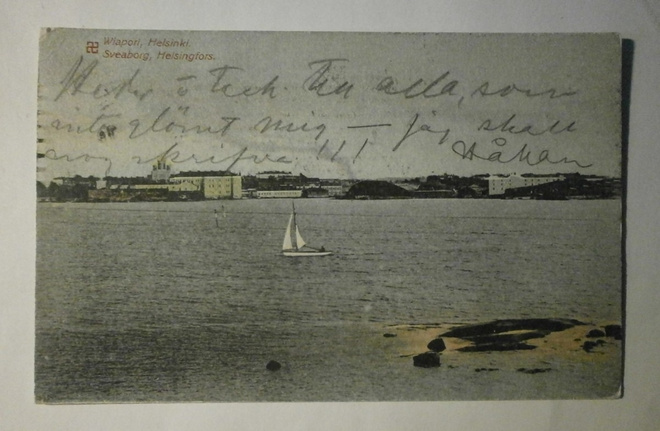 Wiapori, Helsinki.
Sveaborg, Helsingfors.
ö tack till alla, som
inte glömt mig — jag skall
nog skrifva !!! Håkan